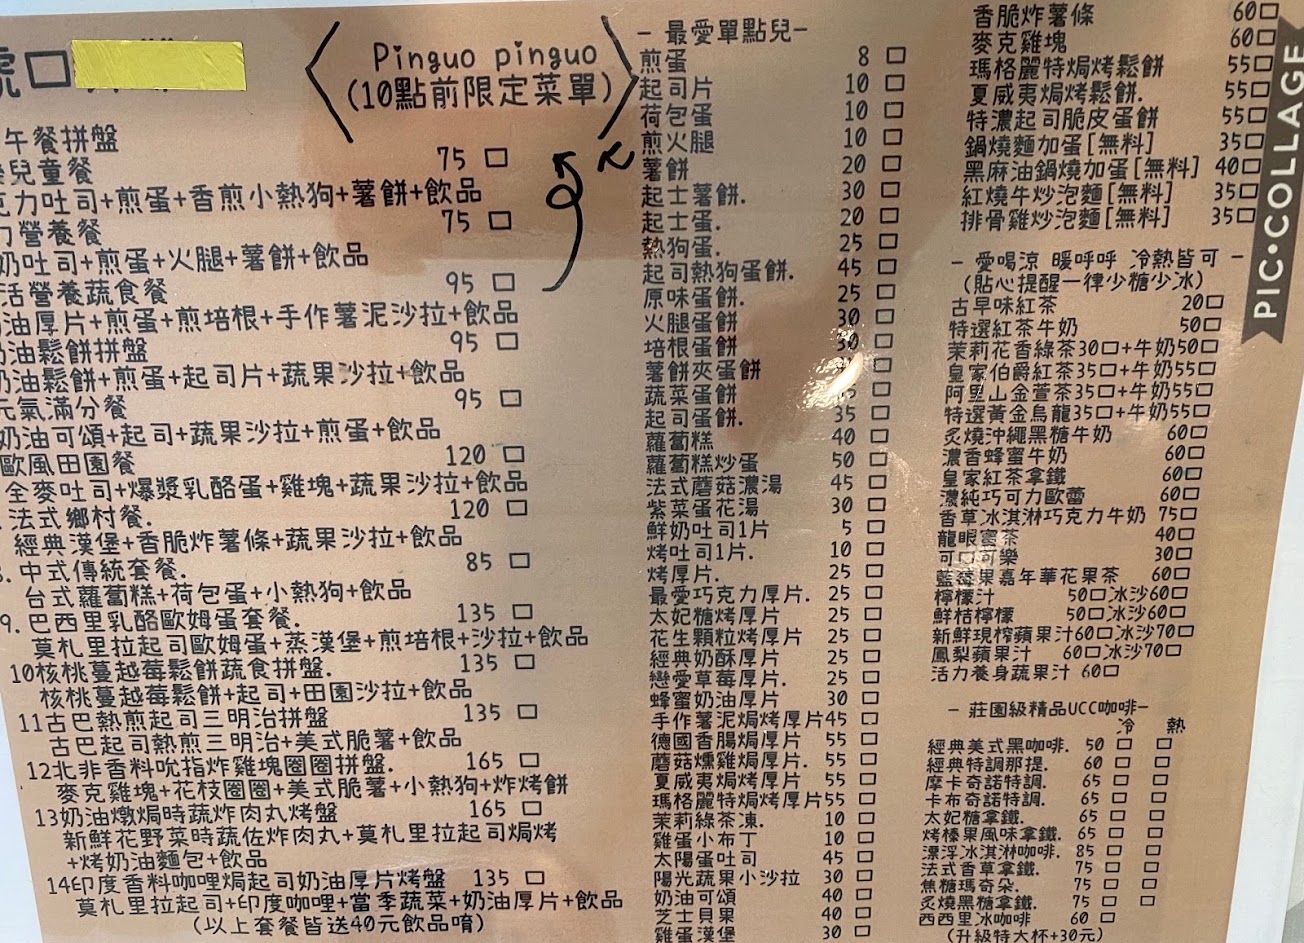 號口
Pinguo pinguo
(10點前限定菜單)
午餐拼盤
兒童餐 75 口
力吐司+煎蛋+香煎小熱狗+薯餅+飲品
營養餐 75 口
奶吐司+煎蛋+火腿+薯餅+飲品
活營養蔬食餐 95 口
油厚片+煎蛋+煎培根+手作薯泥沙拉+飲品
奶油鬆餅拼盤 95 口
奶油鬆餅+煎蛋+起司片+蔬果沙拉+飲品
元氣滿分餐 95 口
奶油可頌+起司+蔬果沙拉+煎蛋+飲品
歐風田園餐 120 口
全麥吐司+爆漿乳酪蛋+雞塊+蔬果沙拉+飲品
法式鄉村餐. 120 口
經典漢堡+香脆炸薯條+蔬果沙拉+飲品
中式傳統套餐. 85 口
台式蘿蔔糕+荷包蛋+小熱狗+飲品
9. 巴西里乳酪歐姆蛋套餐. 135 口
莫札里拉起司歐姆蛋+蒸漢堡+煎培根+沙拉+飲品
10核桃蔓越莓鬆餅蔬食拼盤. 135 口
核桃蔓越莓鬆餅+起司+田園沙拉+飲品
11古巴熱煎起司三明治拼盤 135 口
古巴起司熱煎三明治+美式脆薯+飲品
12北非香料吮指炸雞塊圈圈拼盤. 165 口
麥克雞塊+花枝圈圈+美式脆薯+小熱狗+炸烤餅
13奶油燉焗時蔬炸肉丸烤盤 165 口
新鮮花野菜時蔬佐炸肉丸+莫札里拉起司焗烤
+烤奶油麵包+飲品
14印度香料咖哩焗起司奶油厚片烤盤 135 口
莫札里拉起司+印度咖哩+當季蔬菜+奶油厚片+飲品
(以上套餐皆送40元飲品唷)
- 最愛單點兒-
煎蛋 8 口
起司片 10 口
荷包蛋 10 口
煎火腿 10 口
薯餅 20 口
起士薯餅. 30 口
起士蛋. 20 口
熱狗蛋. 25 口
起司熱狗蛋餅. 45 口
原味蛋餅. 25 口
火腿蛋餅 30 口
培根蛋餅 30 口
薯餅夾蛋餅 口
蔬菜蛋餅 口
起司蛋餅. 35 口
蘿蔔糕 40 口
蘿蔔糕炒蛋 50 口
法式蘑菇濃湯 45 口
紫菜蛋花湯 30 口
鮮奶吐司1片 5 口
烤吐司1片. 10 口
烤厚片. 25 口
最愛巧克力厚片. 25 口
太妃糖烤厚片 25 口
花生顆粒烤厚片 25 口
經典奶酥厚片 25 口
戀愛草莓厚片. 25 口
蜂蜜奶油厚片 30 口
手作薯泥焗烤厚片45 口
德國香腸焗厚片 55 口
蘑菇燻雞焗厚片. 55 口
夏威夷焗烤厚片 55 口
瑪格麗特焗烤厚片55 口
茉莉綠茶凍. 10 口
雞蛋小布丁 10 口
太陽蛋吐司 45 口
陽光蔬果小沙拉 30 口
奶油可頌 40 口
芝士貝果 40 口
雞蛋漢堡 30 口
香脆炸薯條 60口
麥克雞塊 60口
瑪格麗特焗烤鬆餅 55口
夏威夷焗烤鬆餅. 55口
特濃起司脆皮蛋餅 55口
鍋燒麵加蛋[無料] 35口
黑麻油鍋燒加蛋[無料] 40口
紅燒牛炒泡麵[無料] 35口
排骨雞炒泡麵[無料] 35口
- 愛喝涼 暖呼呼 冷熱皆可 -
(貼心提醒一律少糖少冰)
古早味紅茶 20口
特選紅茶牛奶 50口
茉莉花香綠茶30口+牛奶50口
皇家伯爵紅茶35口+牛奶55口
阿里山金萱茶35口+牛奶55口
特選黃金烏龍35口+牛奶55口
炙燒沖繩黑糖牛奶 60口
濃香蜂蜜牛奶 60口
皇家紅茶拿鐵 60口
濃純巧可力歐蕾 60口
香草冰淇淋巧克力牛奶 75口
龍眼蜜茶 40口
可口可樂 30口
藍莓果嘉年華花果茶 60口
檸檬汁 50口冰沙60口
鮮桔檸檬 50口冰沙60口
新鮮現榨蘋果汁60口冰沙70口
鳳梨蘋果汁 60口冰沙70口
活力養身蔬果汁 60口
- 莊園級精品UCC咖啡-
冷 熱
經典美式黑咖啡. 50 口 口
經典特調那提. 60 口 口
摩卡奇諾特調. 65 口 口
卡布奇諾特調. 65 口 口
太妃糖拿鐵. 65 口 口
烤榛果風味拿鐵. 65 口 口
漂浮冰淇淋咖啡. 85 口 口
法式香草拿鐵. 75 口 口
焦糖瑪奇朵. 75 口 口
炙燒黑糖拿鐵. 75 口 口
西西里冰咖啡 60 口
(升級特大杯+30元)
PIC•COLLAGE